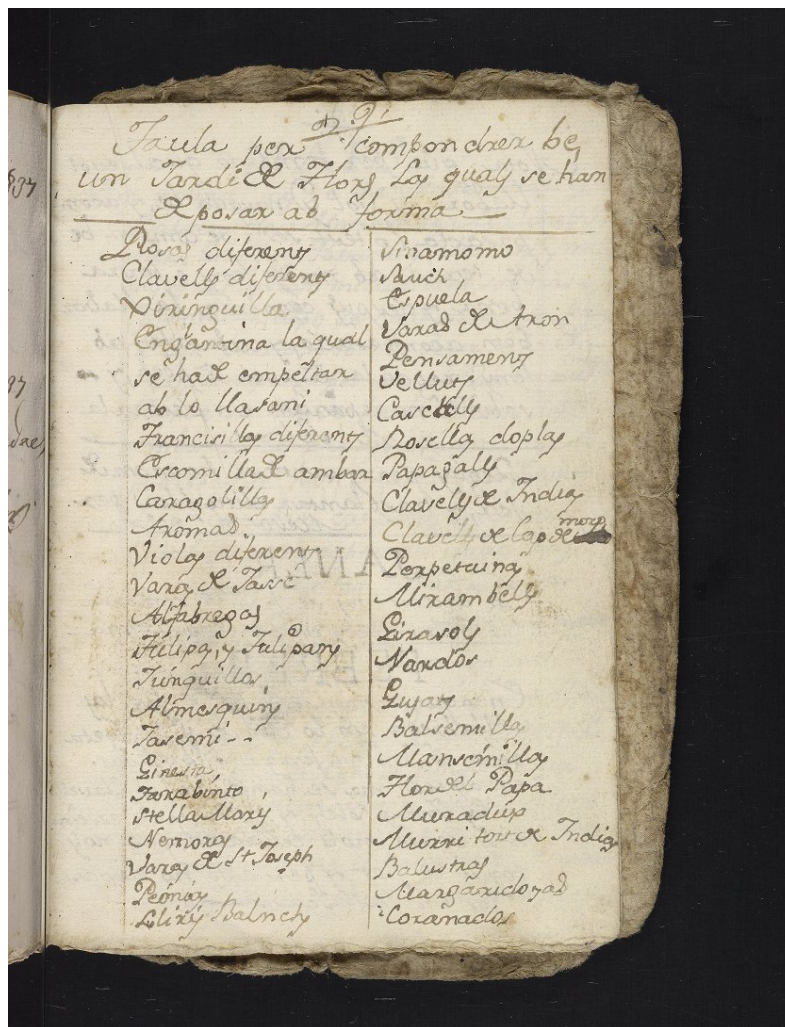 91
Taula per compondrer be,
un Jardi de Flors, Las quals se han
de posar ab forma
Rosas diferents
Clavells diferents
Xiringuilla
Englantina la qual
se ha de empeltar
ab lo llasani
Francisillas diferents
Escomilla de ambar
Caragolillas
Aromas
Violas diferents
Varas de Jasse
Alfabregas
Tulipas, y Tulipans
Junquillos
Almesquins
Jasemi --
Ginesta
Tarabinto
Stella Maris
Nemoros
Varas de St Joseph
Peonias
Lliris Balnchs
Sinamomo
Sauch
Espuela
Varas de Aron
Pensaments
Velluts
Rosellas doplas
Papagalls
Clavells de Indias
Clavells de Cap de moro
Perpetuinas
Mirambells
Girasols
Nardos
Balsemillas
Mansanillas
Flor del Papa
Muradux
Murri tort de Indias
Balustras
Margaridoyas
Coronados